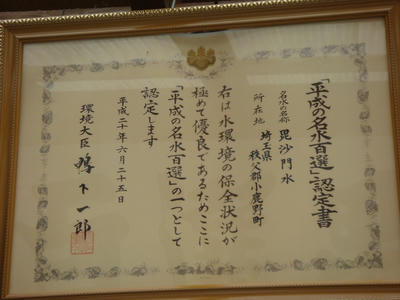 「平成の名水百選」認定書
名水の名称 毘沙門水
所在地 埼玉県秩父郡小鹿野町
右は水環境の保全状況が
極めて優良であるためここに
「平成の名水百選」の一つとして
認定します
平成二十年六月二十五日
環境大臣 鴨下一郎